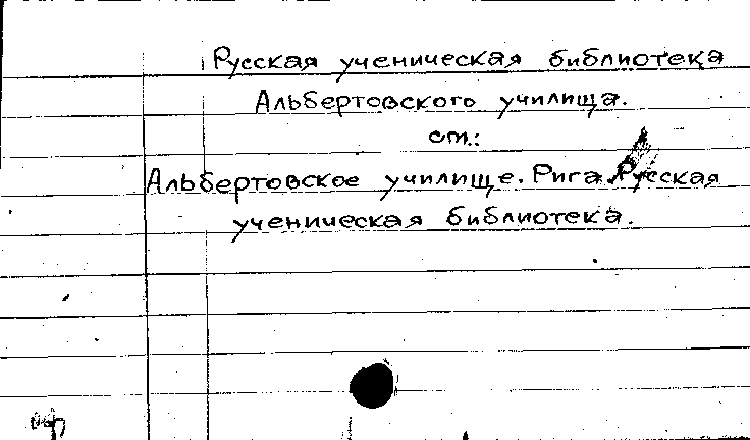 Русская ученическая библиотека
Альбертовского училища.
см.:
Альбертовское училище. Рига. Русская
ученическая библиотека.